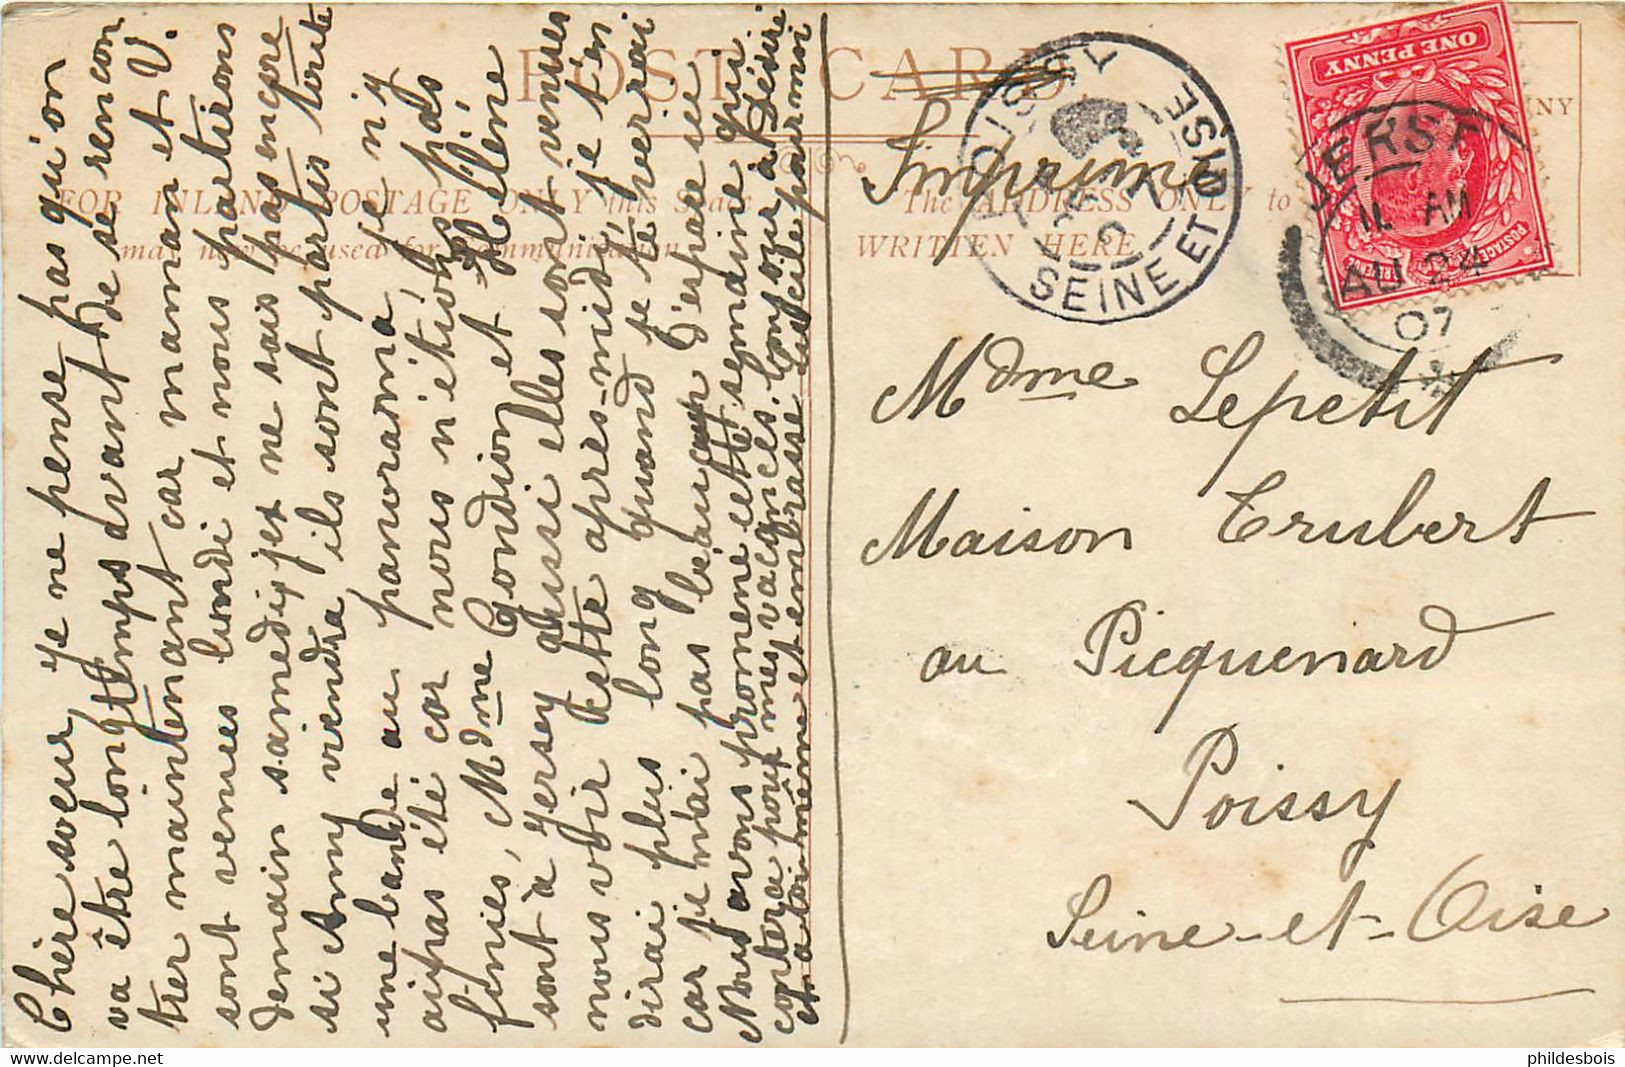 POST CARD.
FOR INLAND POSTAGE ONLY this Space
may now be used for Communication
The ADDRESS ONLY to
WRITTEN HERE
NY
Imprimé
POISSY
SEINE ET OISE
ONE PENNY
POSTAGE
JERSEY
11 AM
AU 24
07
Chère soeur, je ne pense pas qu'on
va être longtemps avant de se rencon
trer maintenant car maman et V.
sont venues lundi et nous partirons
demain samedi, je ne sais pas encore
si Amy viendra, ils sont partis toute
une bande au panorama, je n'y
ai pas été car nous n'étions pas
finies, Mdme Condion et Hélène
sont à Jersey aussi elles sont venues
nous voir cette après-midi, je t'en
dirai plus long quand je te verrai
car je n'ai pas beaucoup d'espace ici
Nous avons promené cette semaine qui
comptera pour mes vacances. Bonjour à Désiré
et à toi-même et embrasse Lucile par moi
Mdme Lepetit
Maison Trubert
au Picquenard
Poissy
Seine-et-Oise
phildesbois